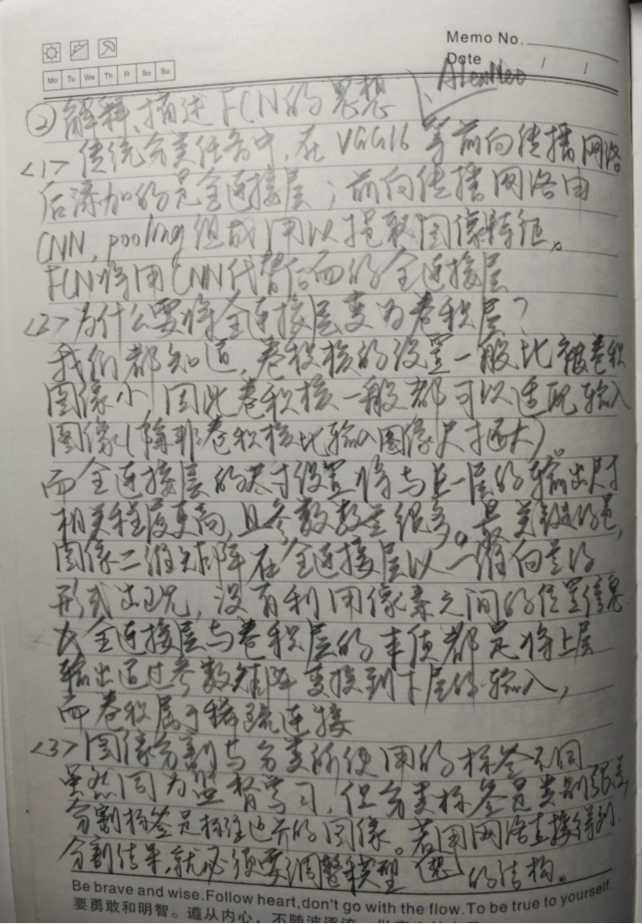 Memo No.
Date / /
Mo Tu We Th Fr Sa Su
AlexNet
② 解释、描述FCN的思想
<1> 传统分类任务中,在VGG16等前向传播网络
后添加的是全连接层;前向传播网络由
CNN, pooling组成用以提取图像特征。
FCN将用CNN代替后面的全连接层
<2> 为什么要将全连接层变为卷积层?
我们都知道,卷积核的设置一般比被卷积
图像小,因此卷积核一般都可以适配输入
图像(除非卷积核比输入图像尺寸还大)。
而全连接层的尺寸设置将与上一层的输出尺寸
相关程度更高,且参数数量很多。最关键的是,
图像二维矩阵在全连接层以一维向量的
形式出现,没有利用像素之间的位置信息
大全连接层与卷积层的本质都是将上层
输出通过参数矩阵变换到下层的输入,
而卷积属于稀疏连接
<3> 图像分割与分类所使用的标签不同
虽然同为监督学习,但分类标签是类别
分割标签是标注过后的图像。若用网络直接得到
分割结果,就必须要调整模型 的结构。
Be brave and wise.Follow heart,don't go with the flow.To be true to yourself.
要勇敢和明智。遵从内心,不随波逐流